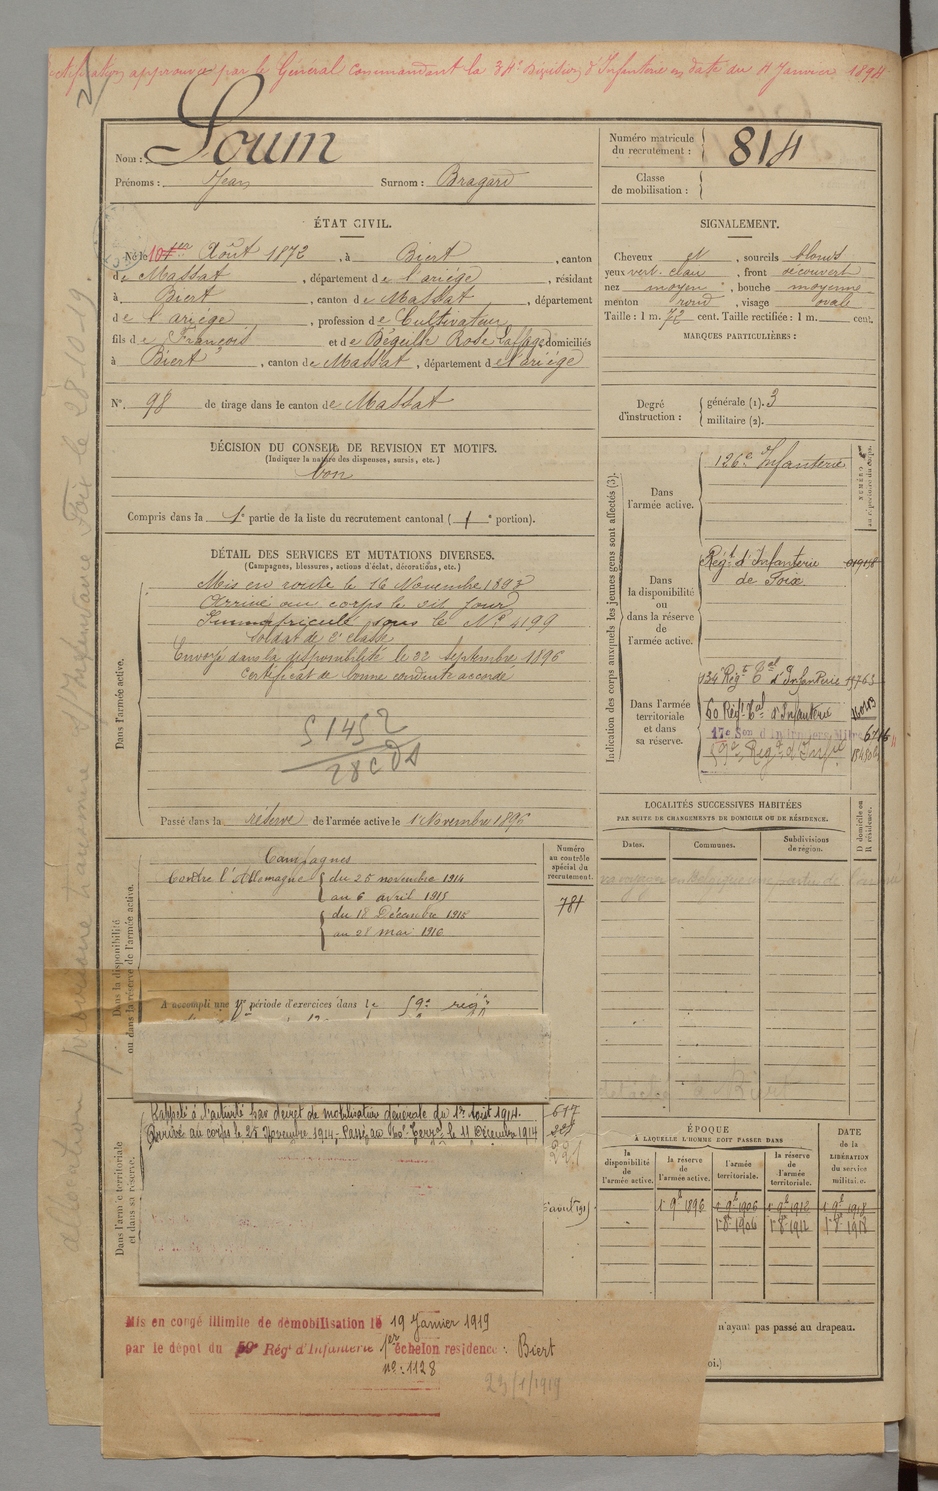 approuvée par le Général Commandant la 34e Division d'Infanterie en date du 11 Janvier 1894
Nom : Loum
Prénoms : Jean Surnom : Bragard
Numéro matricule du recrutement : 814
Classe de mobilisation :
ÉTAT CIVIL.
Né le 10 Août 1872, à Biert, canton
de Massat, département de l'ariége, résidant
à Biert, canton de Massat, département
de l'ariége, profession de Cultivateur
fils de François et de Béguille Rose Laffage domiciliés
à Biert, canton de Massat, département de l'ariége
N° 98 de tirage dans le canton de Massat
SIGNALEMENT.
Cheveux et, sourcils blonds
yeux vert. clair, front découvert
nez moyen, bouche moyenne
menton rond, visage ovale
Taille : 1 m. 72 cent. Taille rectifiée : 1 m. cent.
MARQUES PARTICULIÈRES :
Degré d'instruction : générale (1). 3
militaire (2).
DÉCISION DU CONSEIL DE REVISION ET MOTIFS.
(Indiquer la nature des dispenses, sursis, etc.)
bon
Compris dans la 1e partie de la liste du recrutement cantonal (1e portion).
DÉTAIL DES SERVICES ET MUTATIONS DIVERSES.
(Campagnes, blessures, actions d'éclat, décorations, etc.)
Dans l'armée active.
Mis en route le 16 Novembre 1893
Arrivé au corps le dit jour
Immatriculé sous le No 4199
Soldat de 2e classe
Envoyé dans la disponibilité le 22 septembre 1896
Certificat de bonne conduite accordé
Passé dans la réserve de l'armée active le 1 Novembre 1896
Indication des corps auxquels les jeunes gens sont affectés (3).
NUMÉRO au répertoire du corps.
Dans l'armée active. 126e Infanterie
Dans la disponibilité ou dans la réserve de l'armée active.
Régt d'Infanterie de Foix
Dans l'armée territoriale et dans sa réserve.
134e Régt Tal d'Infanterie
60 Régt Tal d'Infanterie
59e Régt d'Infie
LOCALITÉS SUCCESSIVES HABITÉES
PAR SUITE DE CHANGEMENTS DE DOMICILE OU DE RÉSIDENCE.
Dates. Communes. Subdivisions de région. D domicile ou R résidence.
Dans la disponibilité ou dans la réserve de l'armée active.
Numéro au contrôle spécial du recrutement.
781
Campagnes
Contre l'Allemagne du 25 novembre 1914
au 6 avril 1915
du 18 Décembre 1915
au 28 mai 1916
A accompli une 1re période d'exercices dans le 59e régt
Dans l'armée territoriale et dans sa réserve.
Rappelé à l'activité par décret de mobilisation générale du 1er Août 1914.
Arrivé au corps le 25 Novembre 1914. Passé au 140e Terral le 11 Décembre 1914
617
221
ÉPOQUE
À LAQUELLE L'HOMME DOIT PASSER DANS
la disponibilité de l'armée active. la réserve de l'armée active. l'armée territoriale. la réserve de l'armée territoriale.
DATE de la LIBÉRATION du service militaire.
1 9bre 1896 1 9bre 1906 1 9bre 1912 1 9bre 1918
1 8bre 1906 1 8bre 1912 1 8bre 1918
n'ayant pas passé au drapeau.
oi.)
Mis en congé illimité de démobilisation le 19 Janvier 1919
par le dépôt du 59e Régt d'Infanterie 1er échelon résidence : Biert
no : 1128
23/1/1919